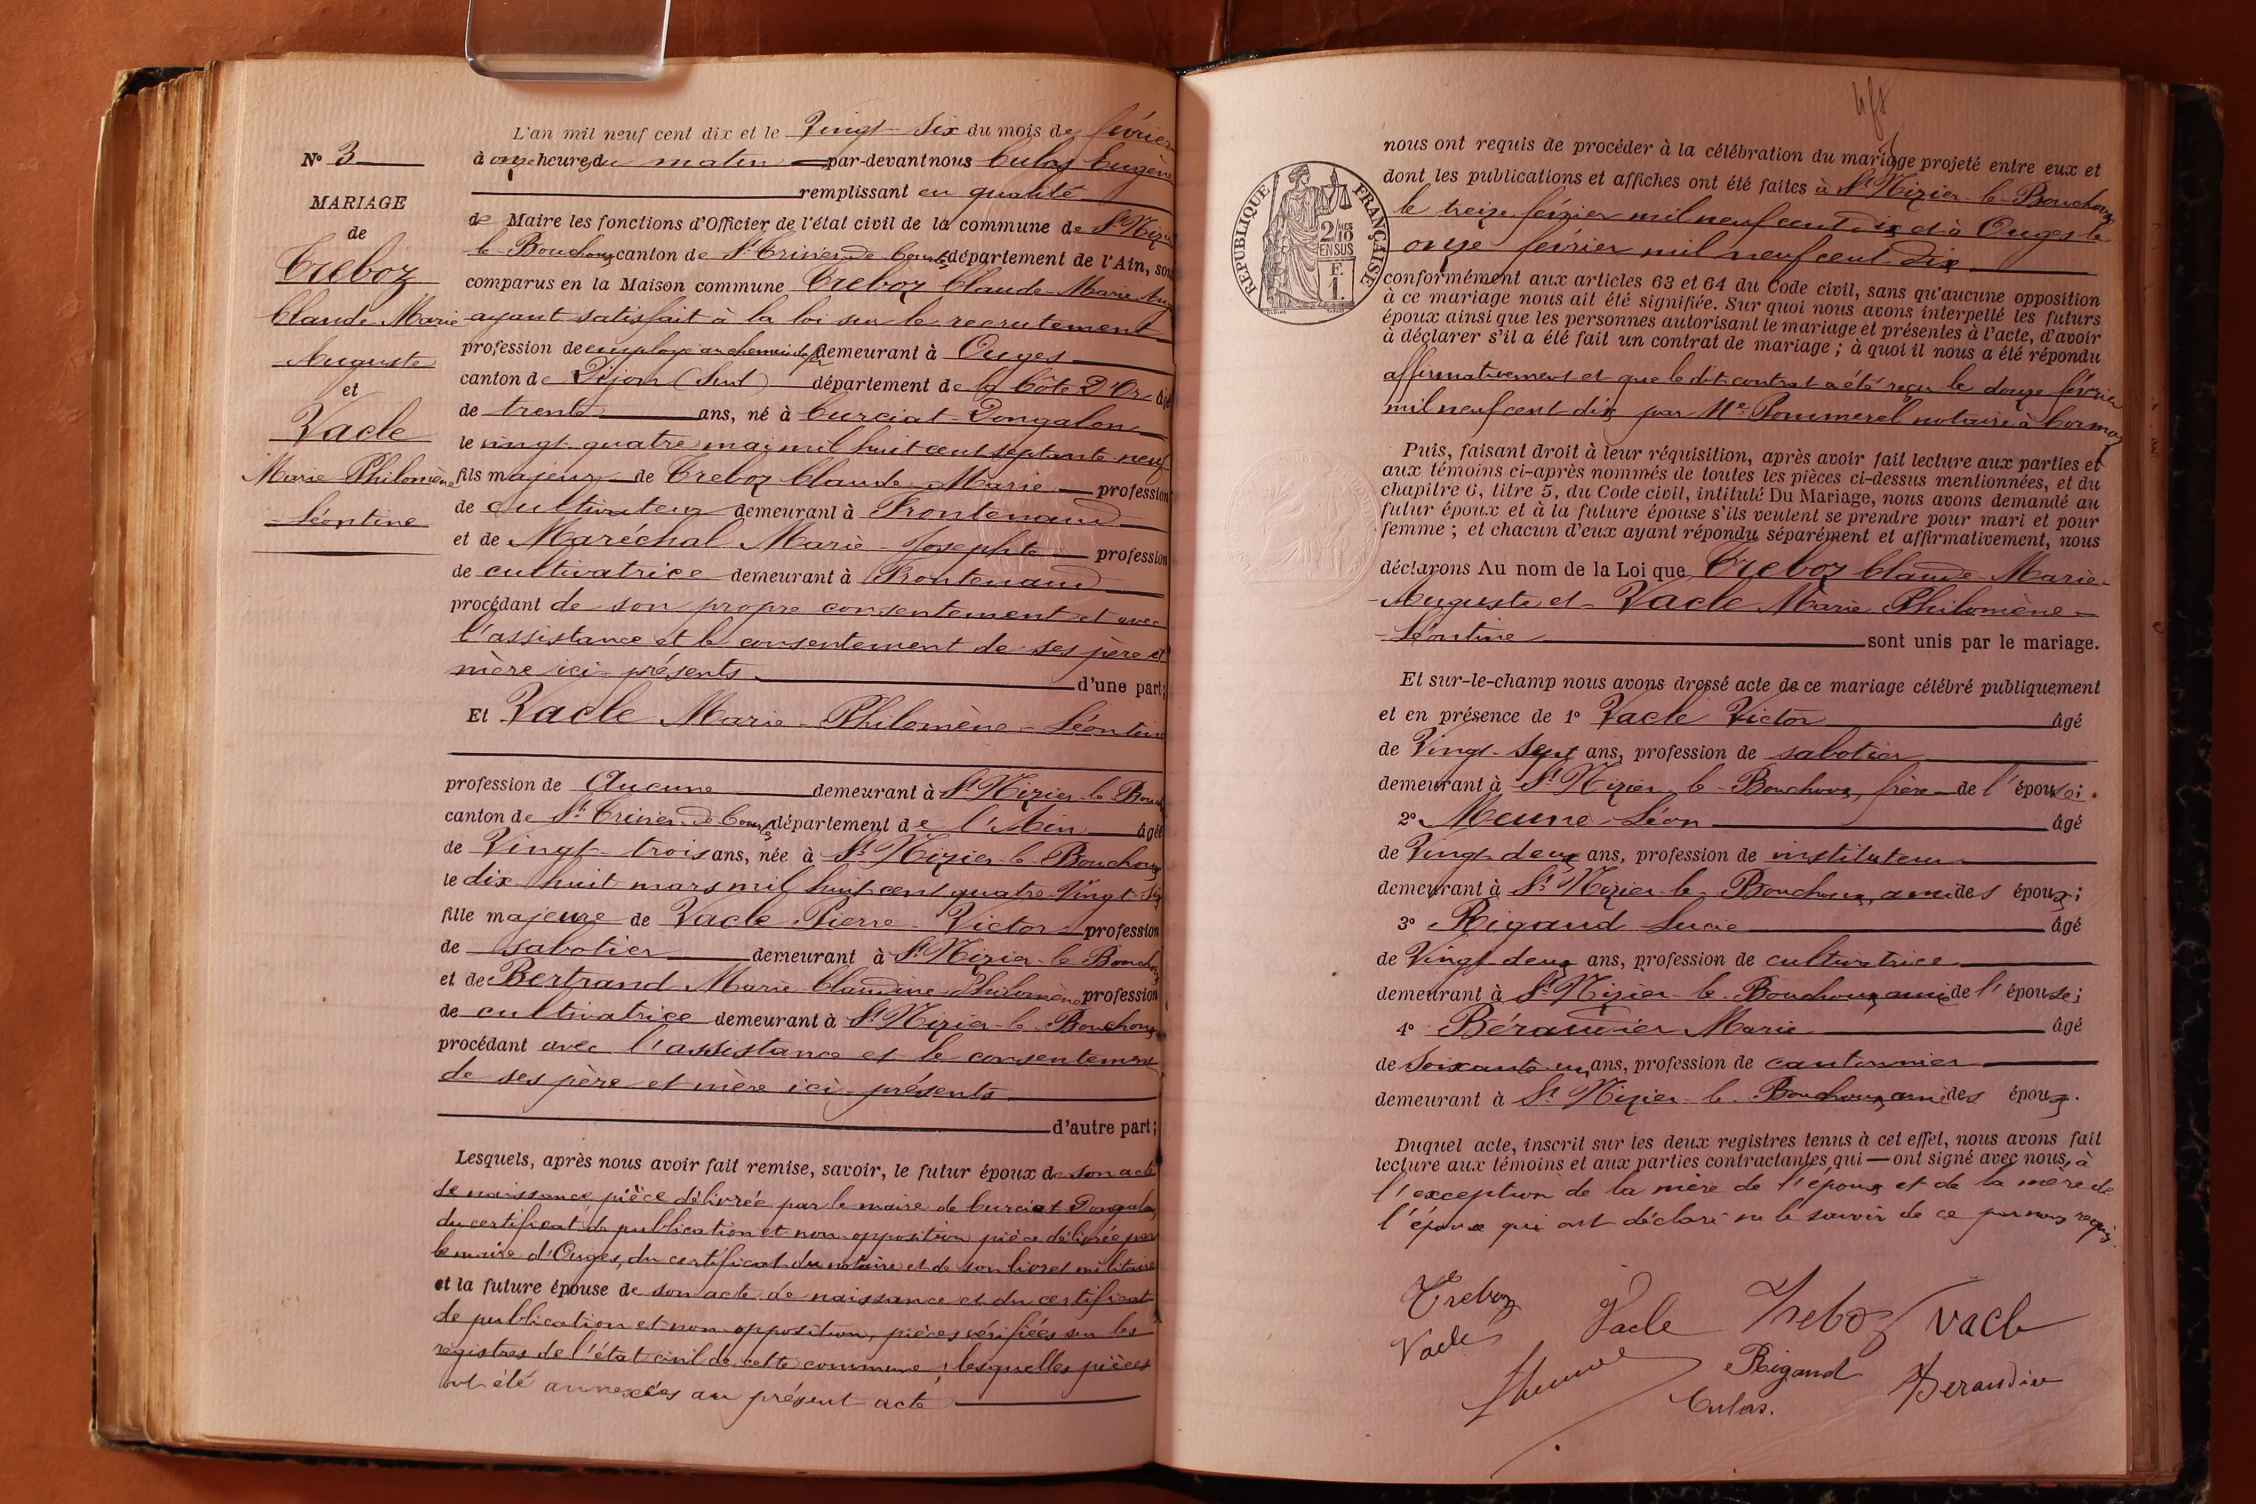 L'an mil neuf cent dix et le Vingt-Six du mois de février
à onze heures du matin par-devant nous Culas Eugène
remplissant en qualité
de Maire les fonctions d'Officier de l'état civil de la commune de St Nizier
le Bouchoux canton de St Trivier de Courtes département de l'Ain, sont
comparus en la Maison commune Treboz Claude-Marie Aug
ayant satisfait à la loi sur le recrutement
profession de employé au chemin de fer demeurant à Ouges
canton de Dijon (Sud) département de la Côte d'Or âgé
de trente ans, né à Curciat-Dongalon
le vingt-quatre mai mil huit cent septante neuf
fils majeur de Treboz Claude-Marie profession
de cultivateur demeurant à Frontenaud
et de Maréchal Marie-Josephte profession
de cultivatrice demeurant à Frontenaud
procédant de son propre consentement et avec
l'assistance et le consentement de ses père et
mère ici présents d'une part;
Et Vacle Marie-Philomène-Léontine
profession de Aucune demeurant à St Nizier-le-Bouch
canton de St Trivier de Courtes département de l'Ain âgée
de Vingt-trois ans, née à St Nizier-le-Bouchoux
le dix huit mars mil huit cent quatre-vingt-six
fille majeure de Vacle Pierre-Victor profession
de sabotier demeurant à St Nizier-le-Bouchoux
et de Bertrand Marie-Claudine-Philomène profession
de cultivatrice demeurant à St Nizier-le-Bouchoux
procédant avec l'assistance et le consentement
de ses père et mère ici présents
d'autre part;
Lesquels, après nous avoir fait remise, savoir, le futur époux de son acte
de naissance pièce délivrée par le maire de Curciat Dongalon,
du certificat de publication et non opposition pièce délivrée par
le maire d'Ouges, du certificat du notaire et de son livret militaire
et la future épouse de son acte de naissance et du certificat
de publication et non opposition, pièces vérifiées sur les
registres de l'état civil de cette commune; lesquelles pièces
ont été annexées au présent acte
N° 3
MARIAGE
de
Treboz
Claude Marie
Auguste
et
Vacle
Marie Philomène
Léontine
RÉPUBLIQUE FRANÇAISE
2/10 EN SUS
F.
1.
nous ont requis de procéder à la célébration du mariage projeté entre eux et
dont les publications et affiches ont été faites à St Nizier-le-Bouchoux
le treize février mil neuf cent dix et à Ouges le
onze février mil neuf cent dix
conformément aux articles 63 et 64 du Code civil, sans qu'aucune opposition
à ce mariage nous ait été signifiée. Sur quoi nous avons interpellé les futurs
époux ainsi que les personnes autorisant le mariage et présentes à l'acte, d'avoir
à déclarer s'il a été fait un contrat de mariage; à quoi il nous a été répondu
affirmativement et que le dit contrat a été reçu le douze février
mil neuf cent dix par Me Pommerel notaire à Cormoz
Puis, faisant droit à leur réquisition, après avoir fait lecture aux parties et
aux témoins ci-après nommés de toutes les pièces ci-dessus mentionnées, et du
chapitre 6, titre 5, du Code civil, intitulé Du Mariage, nous avons demandé au
futur époux et à la future épouse s'ils veulent se prendre pour mari et pour
femme; et chacun d'eux ayant répondu séparément et affirmativement, nous
déclarons Au nom de la Loi que Treboz Claude-Marie-
Auguste et Vacle Marie Philomène-
Léontine sont unis par le mariage.
Et sur-le-champ nous avons dressé acte de ce mariage célébré publiquement
et en présence de 1° Vacle Victor âgé
de Vingt-Sept ans, profession de sabotier
demeurant à St Nizier-le-Bouchoux, frère de l'épouse;
2° Meune Léon âgé
de Vingt-deux ans, profession de instituteur
demeurant à St Nizier-le-Bouchoux, ami des époux;
3° Rigaud Lucie âgé
de Vingt deux ans, profession de cultivatrice
demeurant à St Nizier-le-Bouchoux, amie de l'épouse;
4° Béraudier Marie âgé
de soixante un ans, profession de cantonnier
demeurant à St Nizier-le-Bouchoux, ami des époux.
Duquel acte, inscrit sur les deux registres tenus à cet effet, nous avons fait
lecture aux témoins et aux parties contractantes qui ont signé avec nous, à
l'exception de la mère de l'époux et de la mère de
l'épouse qui ont déclaré ne le savoir de ce par nous requis.
Treboz
Vacle
Treboz
Vacle
Vacle
Rigaud
Beraudier
Culas.